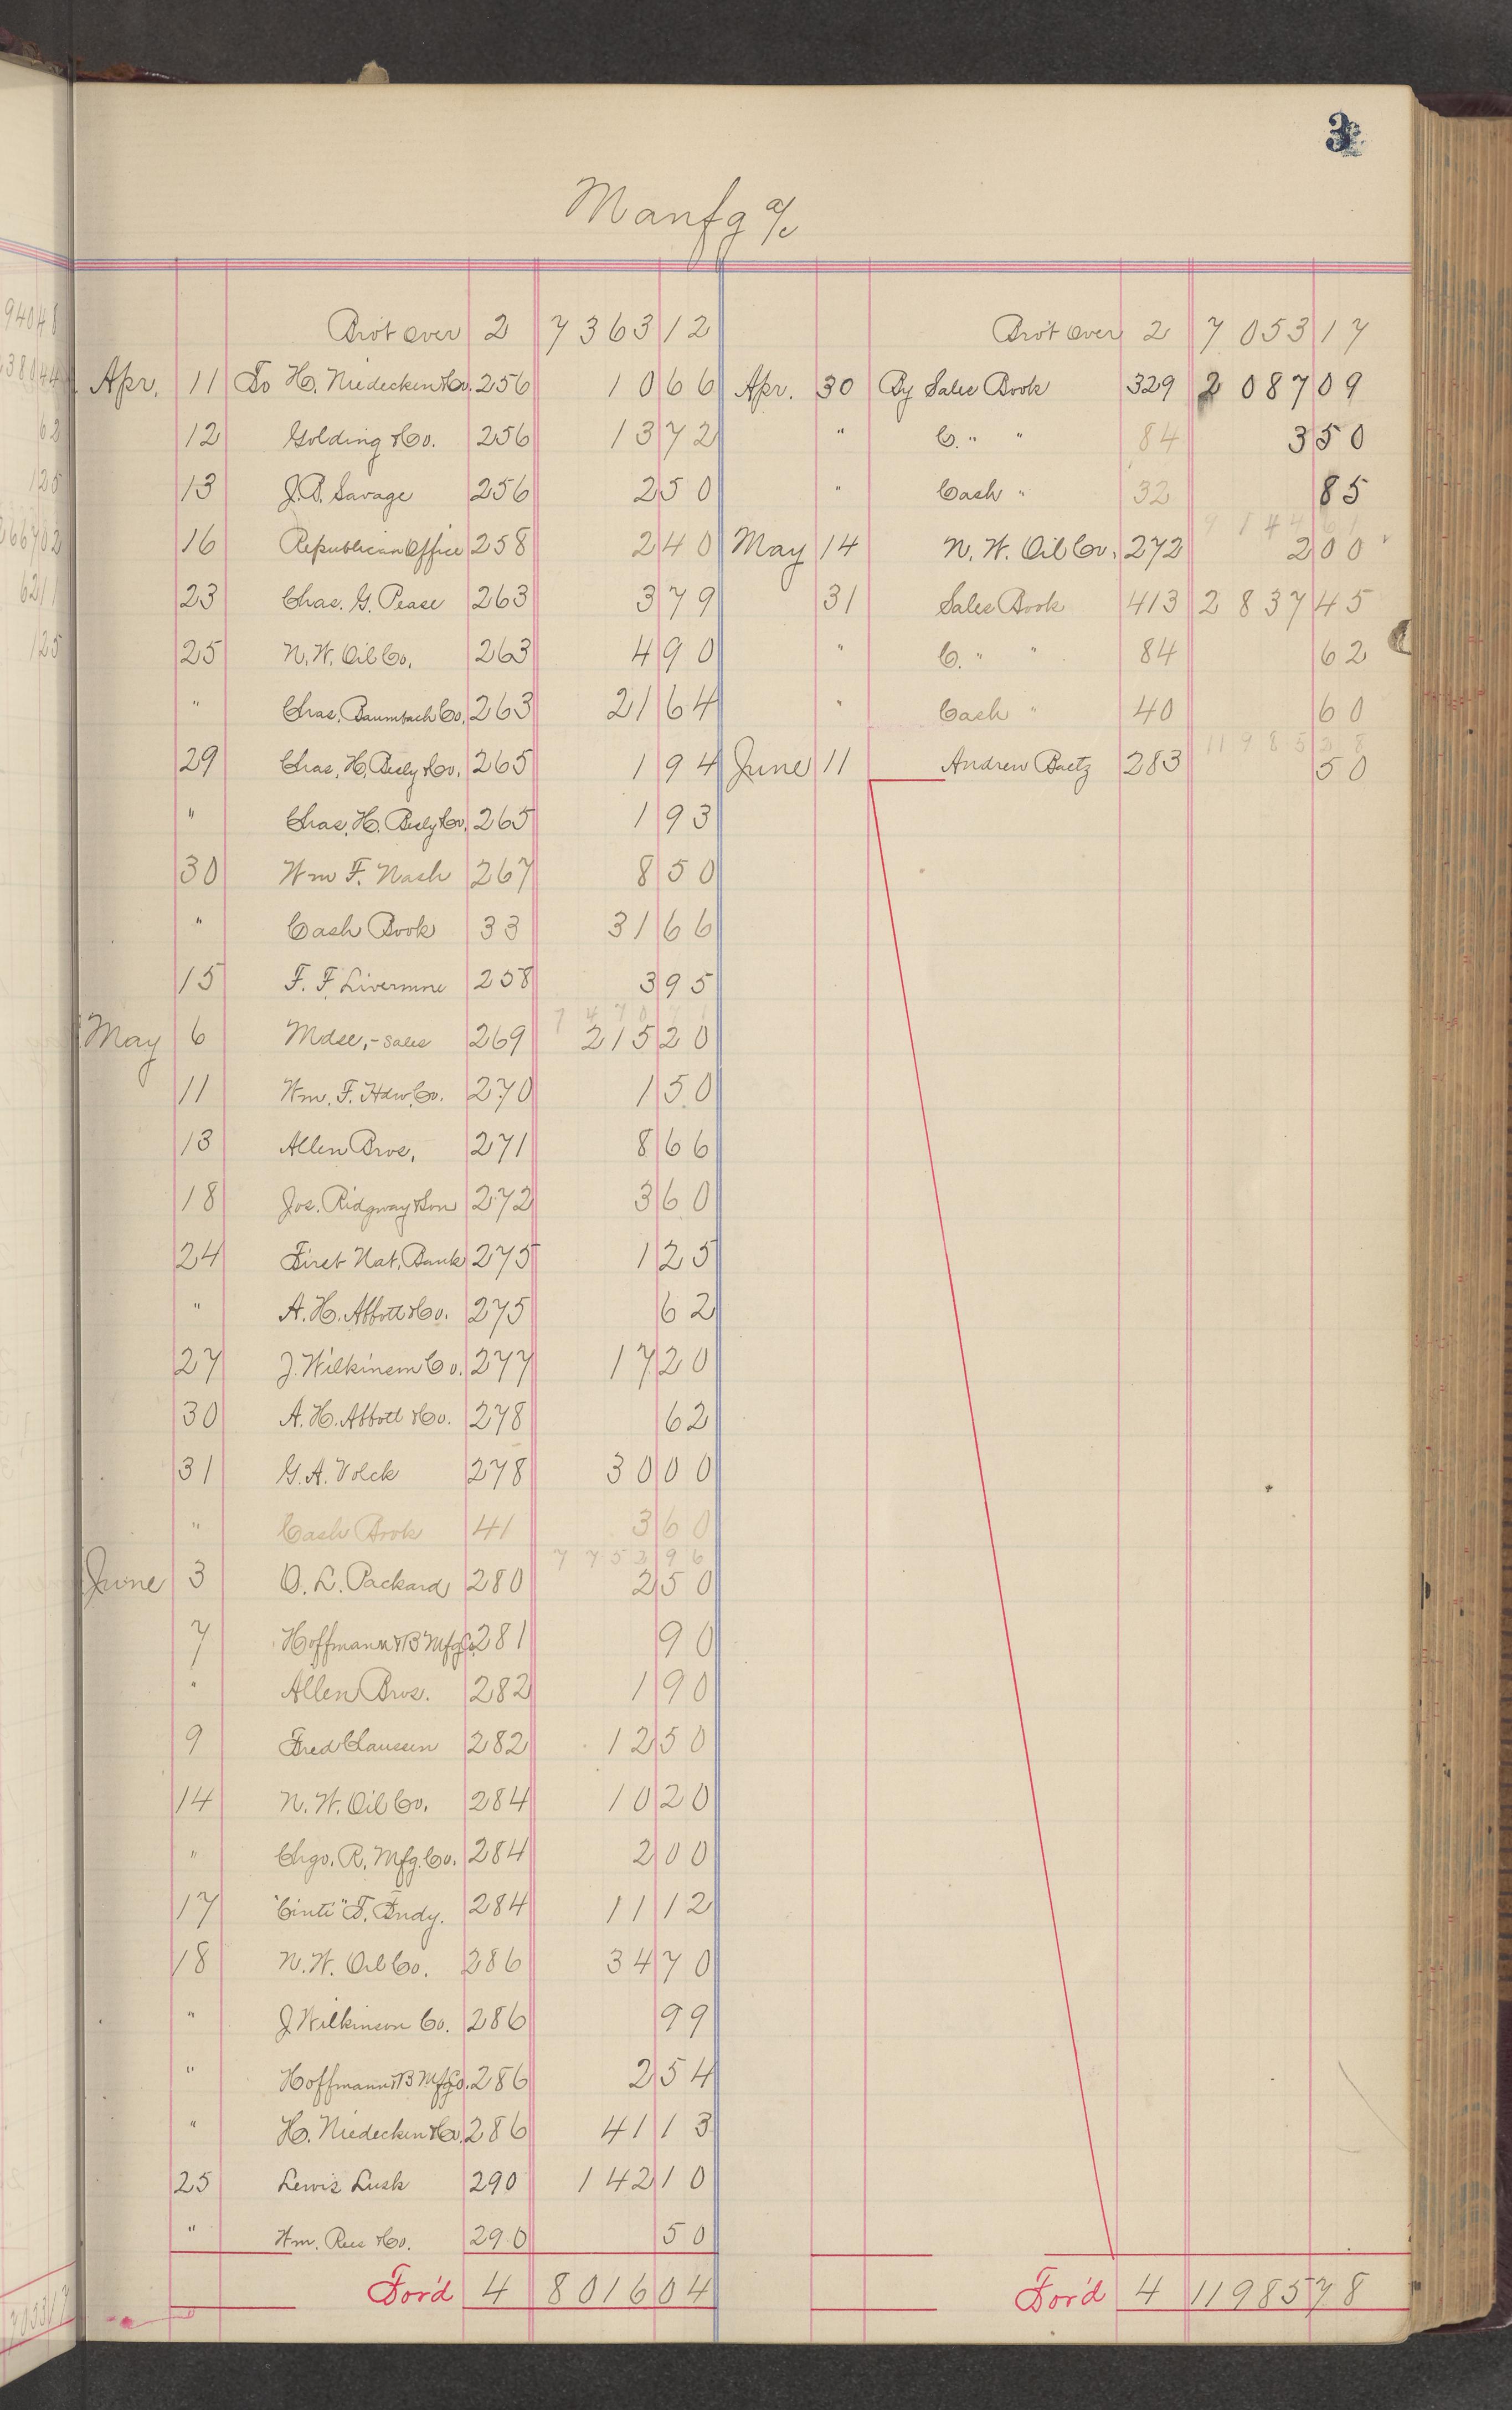 3
Manfg a/c
Bro't over 2 7363 12
Apr. 11 To H. Niedecken & Co. 256 10 66
12 Golding & Co. 256 13 72
13 J.B. Savage 256 2 50
16 Republican Office 258 2 40
23 Chas. G. Pease 263 3 79
25 N.W. Oil Co. 263 4 90
" Chas. Baumbach Co. 263 21 64
29 Chas. H. Besly & Co. 265 1 94
" Chas. H. Besly & Co. 265 1 93
30 Wm F. Nash 267 8 50
" Cash Book 33 31 66
15 F. F. Livermore 258 3 95
7470 71
May 6 Mdse, - Sales 269 215 20
11 Wm. F. Hdw. Co. 270 1 50
13 Allen Bros. 271 8 66
18 Jos. Ridgway & Son 272 3 60
24 First Nat. Bank 275 1 25
" A. H. Abbott & Co. 275 62
27 J. Wilkinson Co. 277 17 20
30 A. H. Abbott & Co. 278 62
31 G. A. Volck 278 30 00
" Cash Book 41 3 60
7752 96
June 3 O. L. Packard 280 2 50
7 Hoffmann & B Mfg Co. 281 90
" Allen Bros. 282 1 90
9 Fred Claussen 282 12 50
14 N. W. Oil Co. 284 10 20
" Chgo. R. Mfg. Co. 284 2 00
17 "Cinti" T. Fndy. 284 11 12
18 N. W. Oil Co. 286 34 70
" J Wilkinson Co. 286 99
" Hoffmann & B Mfg Co. 286 2 54
" H. Niedecken & Co. 286 41 13
25 Lewis Lusk 290 142 10
" Wm. Rees & Co. 290 50
For'd 4 8016 04
Bro't over 2 7053 17
Apr. 30 By Sales Book 329 2087 09
" C. " " 84 3 50
" Cash " 32 85
9144 61
May 14 N. W. Oil Co. 272 2 00
31 Sales Book 413 2837 45
" C. " " 84 62
" Cash " 40 60
11985 28
June 11 Andrew Baetz 283 50
For'd 4 11985 78
94048
38044
62
125
66702
6211
125
705317